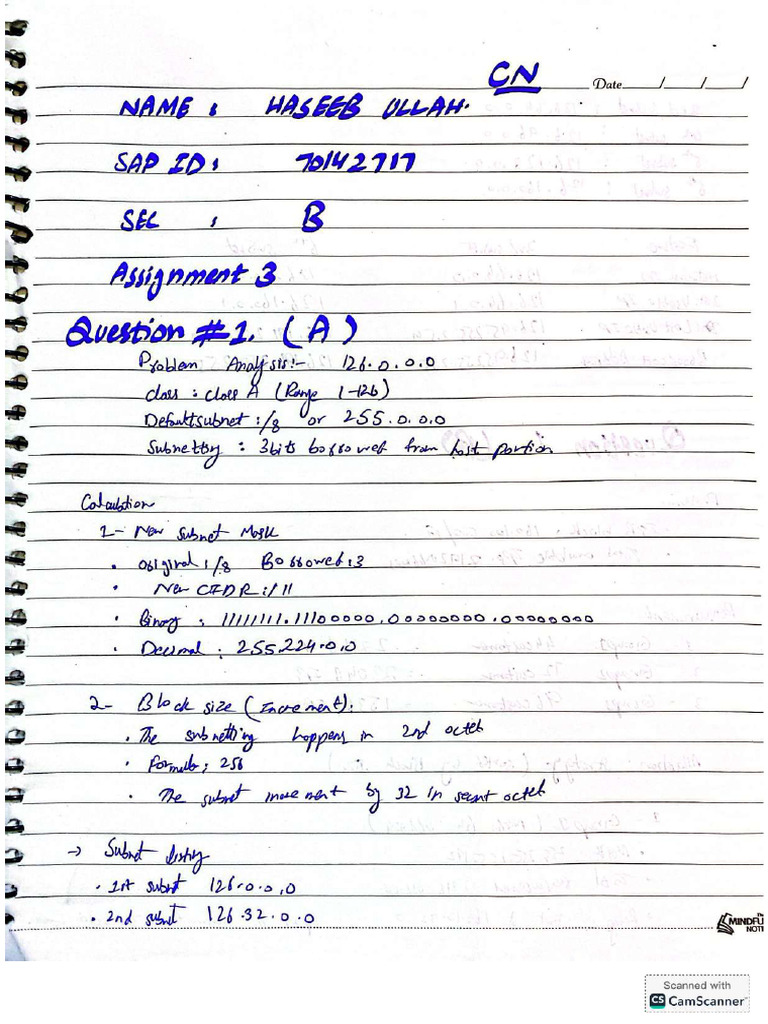 CN
Date / / /
NAME : HASEEB ULLAH.
SAP ID: 70142717
SEC : B
Assignment 3
Question #1. (A)
Problem Analysis:- 126.0.0.0
class : class A (Range 1-126)
Default subnet :/8 or 255.0.0.0
Subnetting : 3bits borrowed from host portion
Calculation
1- New subnet Mask
• original :/8 Borrowed:3
• New CIDR :/11
• Binary : 11111111.11100000.00000000.00000000
• Decimal : 255.224.0.0
2- Block size (Increment):
• The subnetting happens in 2nd octet
• Formula; 256
• The subnet increment by 32 in octet
→ Subnet listing
• 1st subnet 126.0.0.0
• 2nd subnet 126.32.0.0
MINDFU
NOTE
Scanned with
CS CamScanner